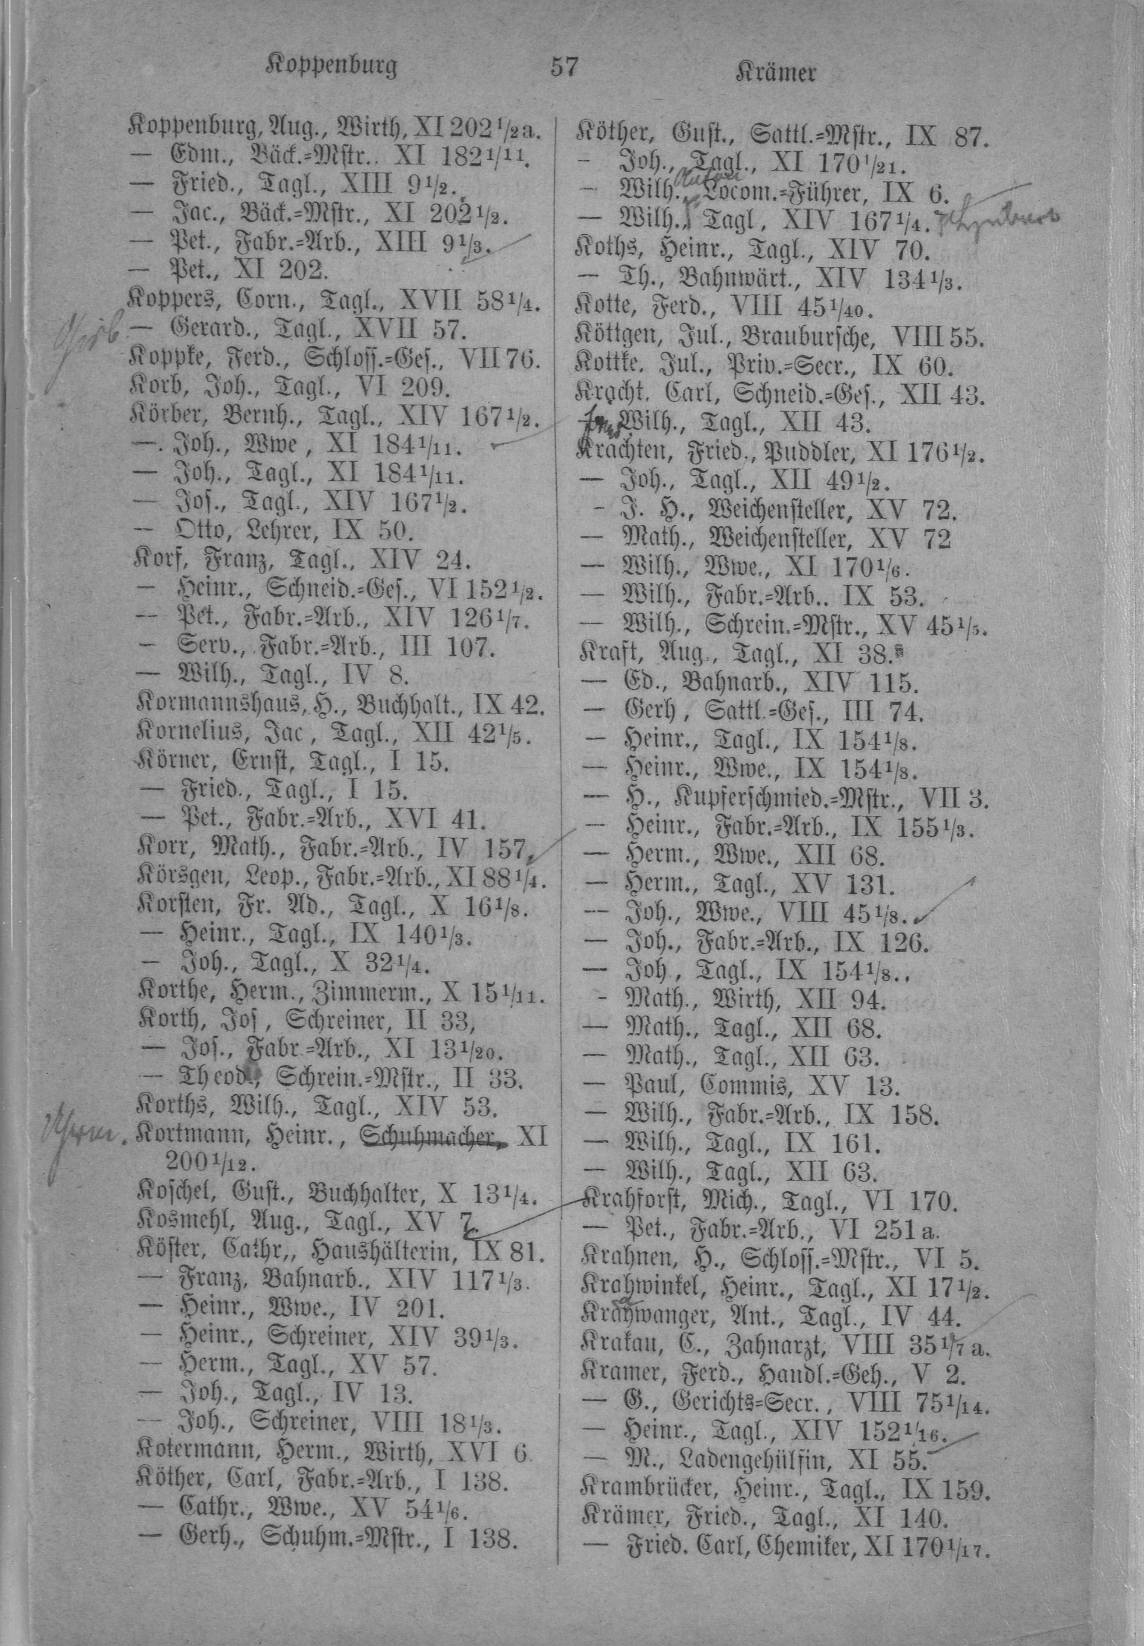 Koppenburg 57 Krämer
Koppenburg, Aug., Wirth, XI 202 1/2 a.
— Edm., Bäck.=Mstr.. XI 182 1/11.
— Fried., Tagl., XIII 9 1/2.
— Jac., Bäck.=Mstr., XI 202 1/2.
— Pet., Fabr.=Arb., XIII 9 1/3.
— Pet., XI 202.
Koppers, Corn., Tagl., XVII 58 1/4.
— Gerard., Tagl., XVII 57.
Koppke, Ferd., Schloss.=Ges., VII 76.
Korb, Joh., Tagl., VI 209.
Körber, Bernh., Tagl., XIV 167 1/2.
— Joh., Wwe, XI 184 1/11.
— Joh., Tagl., XI 184 1/11.
— Jos., Tagl., XIV 167 1/2.
— Otto, Lehrer, IX 50.
Korf, Franz, Tagl., XIV 24.
— Heinr., Schneid.=Ges., VI 152 1/2.
— Pet., Fabr.=Arb., XIV 126 1/7.
— Serv., Fabr.=Arb., III 107.
— Wilh., Tagl., IV 8.
Kormannshaus, H., Buchhalt., IX 42.
Kornelius, Jac, Tagl., XII 42 1/5.
Körner, Ernst, Tagl., I 15.
— Fried., Tagl., I 15.
— Pet., Fabr.=Arb., XVI 41.
Korr, Math., Fabr.=Arb., IV 157.
Körsgen, Leop., Fabr.=Arb., XI 88 1/4.
Korsten, Fr. Ad., Tagl., X 16 1/8.
— Heinr., Tagl., IX 140 1/3.
— Joh., Tagl., X 32 1/4.
Korthe, Herm., Zimmerm., X 15 1/11.
Korth, Jos, Schreiner, II 33,
— Jos., Fabr.=Arb., XI 13 1/20.
— Theod., Schrein.=Mstr., II 33.
Korths, Wilh., Tagl., XIV 53.
Kortmann, Heinr., Schuhmacher, XI
200 1/12.
Koschel, Gust., Buchhalter, X 13 1/4.
Kosmehl, Aug., Tagl., XV 7.
Köster, Cathr,, Haushälterin, IX 81.
— Franz, Bahnarb., XIV 117 1/3.
— Heinr., Wwe., IV 201.
— Heinr., Schreiner, XIV 39 1/3.
— Herm., Tagl., XV 57.
— Joh., Tagl., IV 13.
— Joh., Schreiner, VIII 18 1/3.
Kotermann, Herm., Wirth, XVI 6
Köther, Carl, Fabr.=Arb., I 138.
— Cathr., Wwe., XV 54 1/6.
— Gerh., Schuhm.=Mstr., I 138.
Köther, Gust., Sattl.=Mstr., IX 87.
— Joh., Tagl., XI 170 1/21.
— Wilh., Locom.=Führer, IX 6.
— Wilh., Tagl, XIV 167 1/4.
Koths, Heinr., Tagl., XIV 70.
— Th., Bahnwärt., XIV 134 1/3.
Kotte, Ferd., VIII 45 1/40.
Köttgen, Jul., Braubursche, VIII 55.
Kottke. Jul., Priv.=Secr., IX 60.
Kracht. Carl, Schneid.=Ges., XII 43.
— Wilh., Tagl., XII 43.
Krachten, Fried., Puddler, XI 176 1/2.
— Joh., Tagl., XII 49 1/2.
— J. H., Weichensteller, XV 72.
— Math., Weichensteller, XV 72
— Wilh., Wwe., XI 170 1/6.
— Wilh., Fabr.=Arb.. IX 53.
— Wilh., Schrein.=Mstr., XV 45 1/5.
Kraft, Aug., Tagl., XI 38.
— Ed., Bahnarb., XIV 115.
— Gerh, Sattl.=Ges., III 74.
— Heinr., Tagl., IX 154 1/8.
— Heinr., Wwe., IX 154 1/8.
— H., Kupferschmied.=Mstr., VII 3.
— Heinr., Fabr.=Arb., IX 155 1/3.
— Herm., Wwe., XII 68.
— Herm., Tagl., XV 131.
— Joh., Wwe., VIII 45 1/8.
— Joh., Fabr.=Arb., IX 126.
— Joh, Tagl., IX 154 1/8..
— Math., Wirth, XII 94.
— Math., Tagl., XII 68.
— Math., Tagl., XII 63.
— Paul, Commis, XV 13.
— Wilh., Fabr.=Arb., IX 158.
— Wilh., Tagl., IX 161.
— Wilh., Tagl., XII 63.
Krahforst, Mich., Tagl., VI 170.
— Pet., Fabr.=Arb., VI 251 a.
Krahnen, H., Schloss.=Mstr., VI 5.
Krahwinkel, Heinr., Tagl., XI 17 1/2.
Krahwanger, Ant., Tagl., IV 44.
Krakau, C., Zahnarzt, VIII 35 1/7 a.
Kramer, Ferd., Handl.=Geh., V 2.
— G., Gerichts=Secr., VIII 75 1/14.
— Heinr., Tagl., XIV 152 1/16.
— M., Ladengehülfin, XI 55.
Krambrücker, Heinr., Tagl., IX 159.
Krämer, Fried., Tagl., XI 140.
— Fried. Carl, Chemiker, XI 170 1/17.